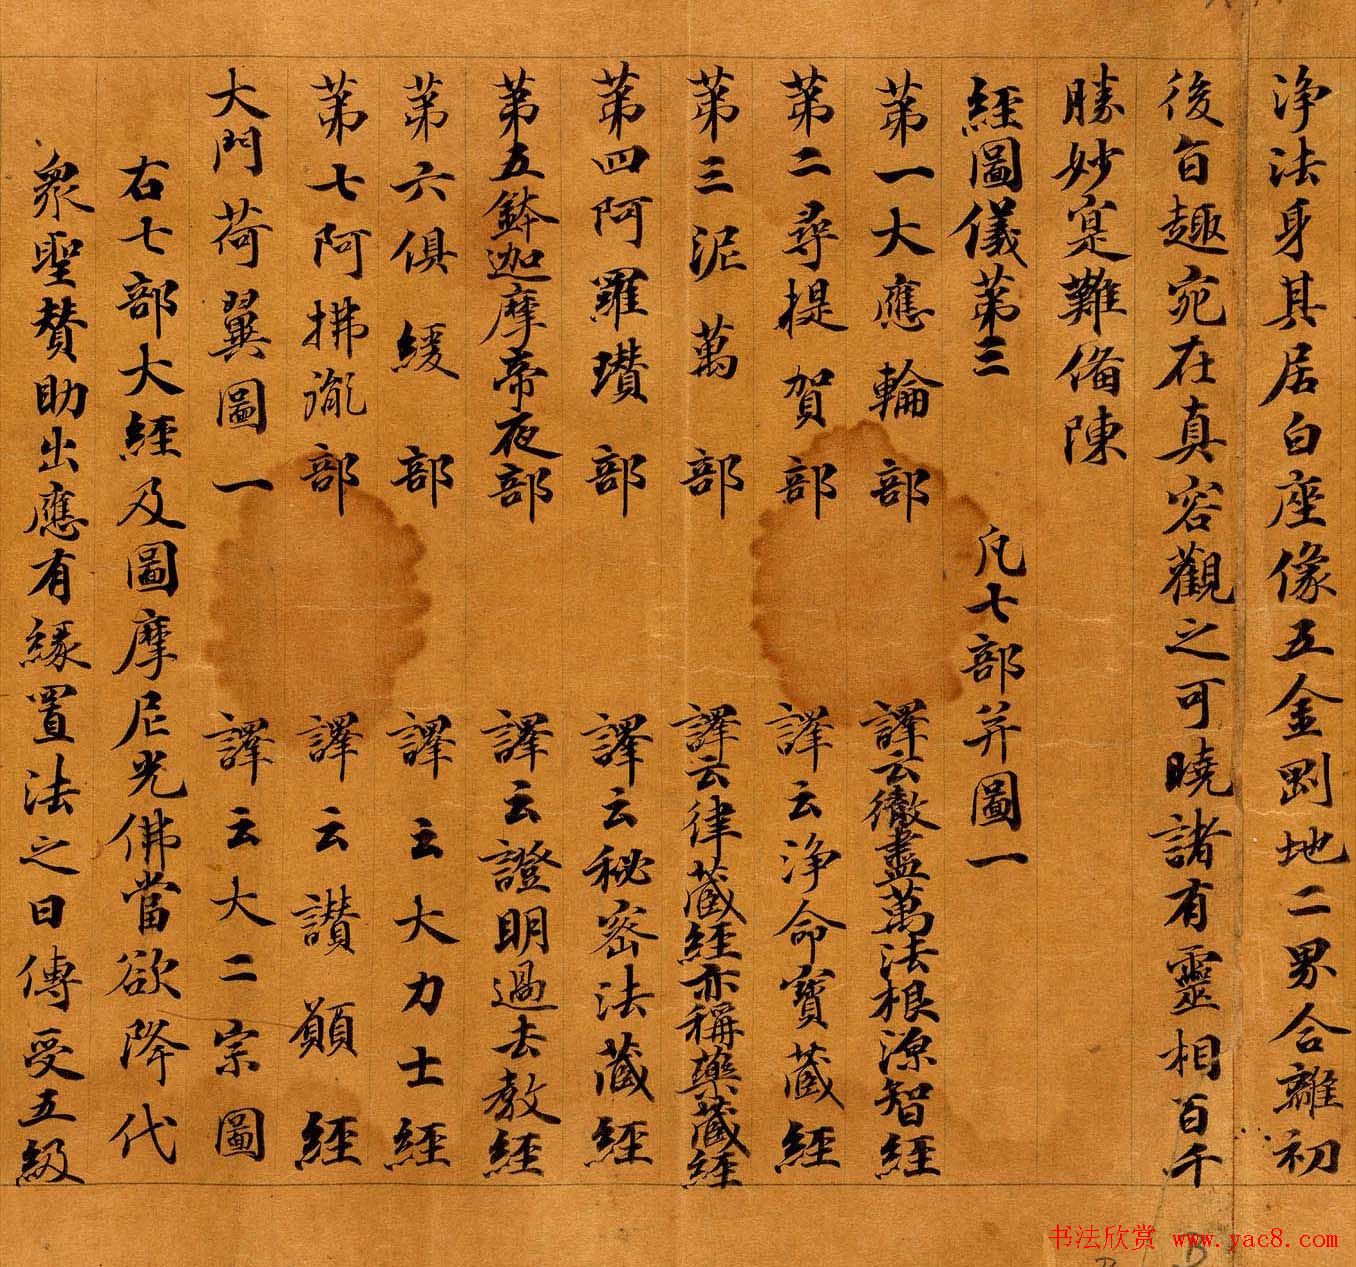 淨法身其居白座像五金剛地二界合離初
後旨趣宛在真容觀之可曉諸有靈相百千
勝妙寔難備陳
經圖儀苐三 凡七部并圖一
苐一大應輪部 譯云徹盡萬法根源智經
苐二尋提賀部 譯云淨命寶藏經
苐三泥萬部 譯云律藏經亦稱藥藏經
苐四阿羅瓚部 譯云秘密法藏經
苐五鉢迦摩帝夜部 譯云證明過去教經
苐六俱緩部 譯云大力士經
苐七阿拂胤部 譯云讃願經
大門荷翼圖一 譯云大二宗圖
右七部大經及圖摩尼光佛當欲降代
衆聖贊助出應有緣置法之日傳受五級
书法欣赏 www.yac8.com